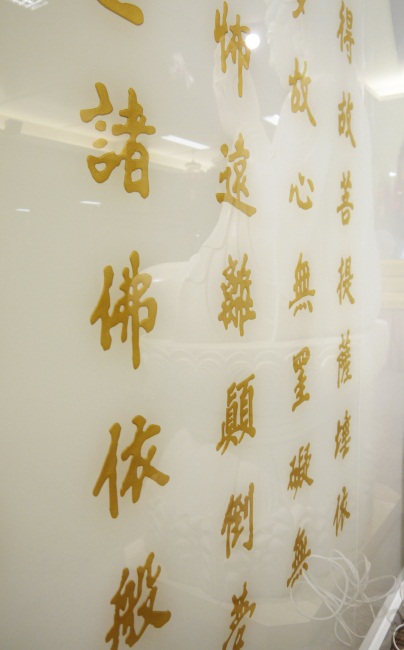 得故菩提薩埵依
故心無罣礙無
怖遠離顛倒夢
諸佛依般